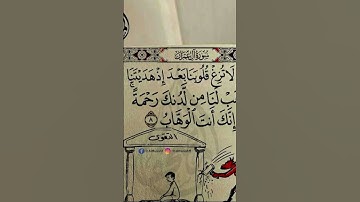 سُورَةُ آلِ عِمْرَانَ
لَا تُزِغْ قُلُوبَنَا بَعْدَ إِذْ هَدَيْتَنَا
لَنَا مِن لَّدُنكَ رَحْمَةً ۚ
إِنَّكَ أَنتَ الْوَهَّابُ ٨
التقوى